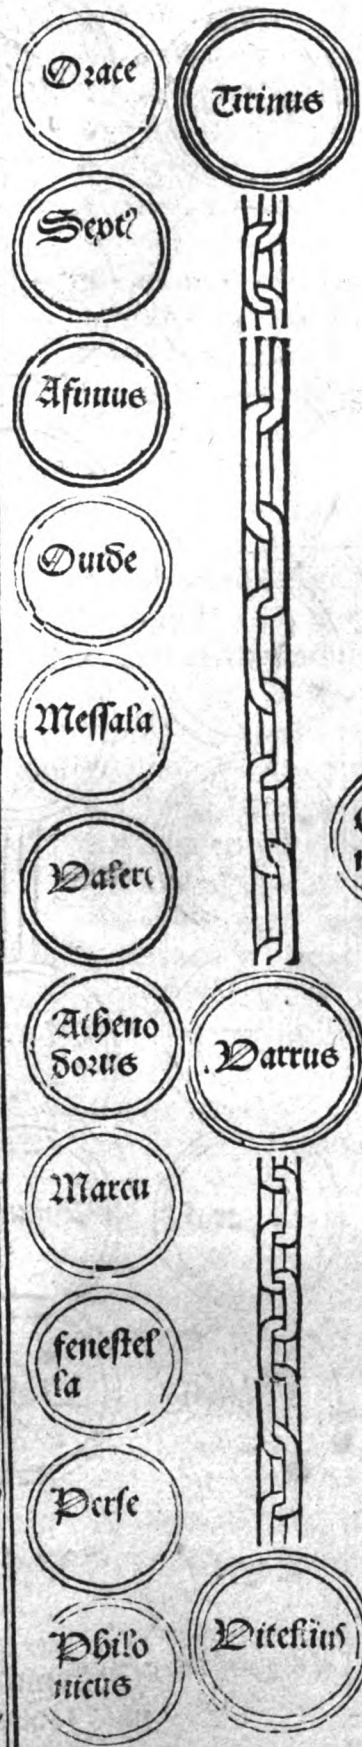 Orace
Sept⁹
Asinius
Ouide
Messala
Valere
Atheno
dorus
Marcu
fenestel
la
Perse
Philo
nicus
Titinus
Varrus
Vitellius